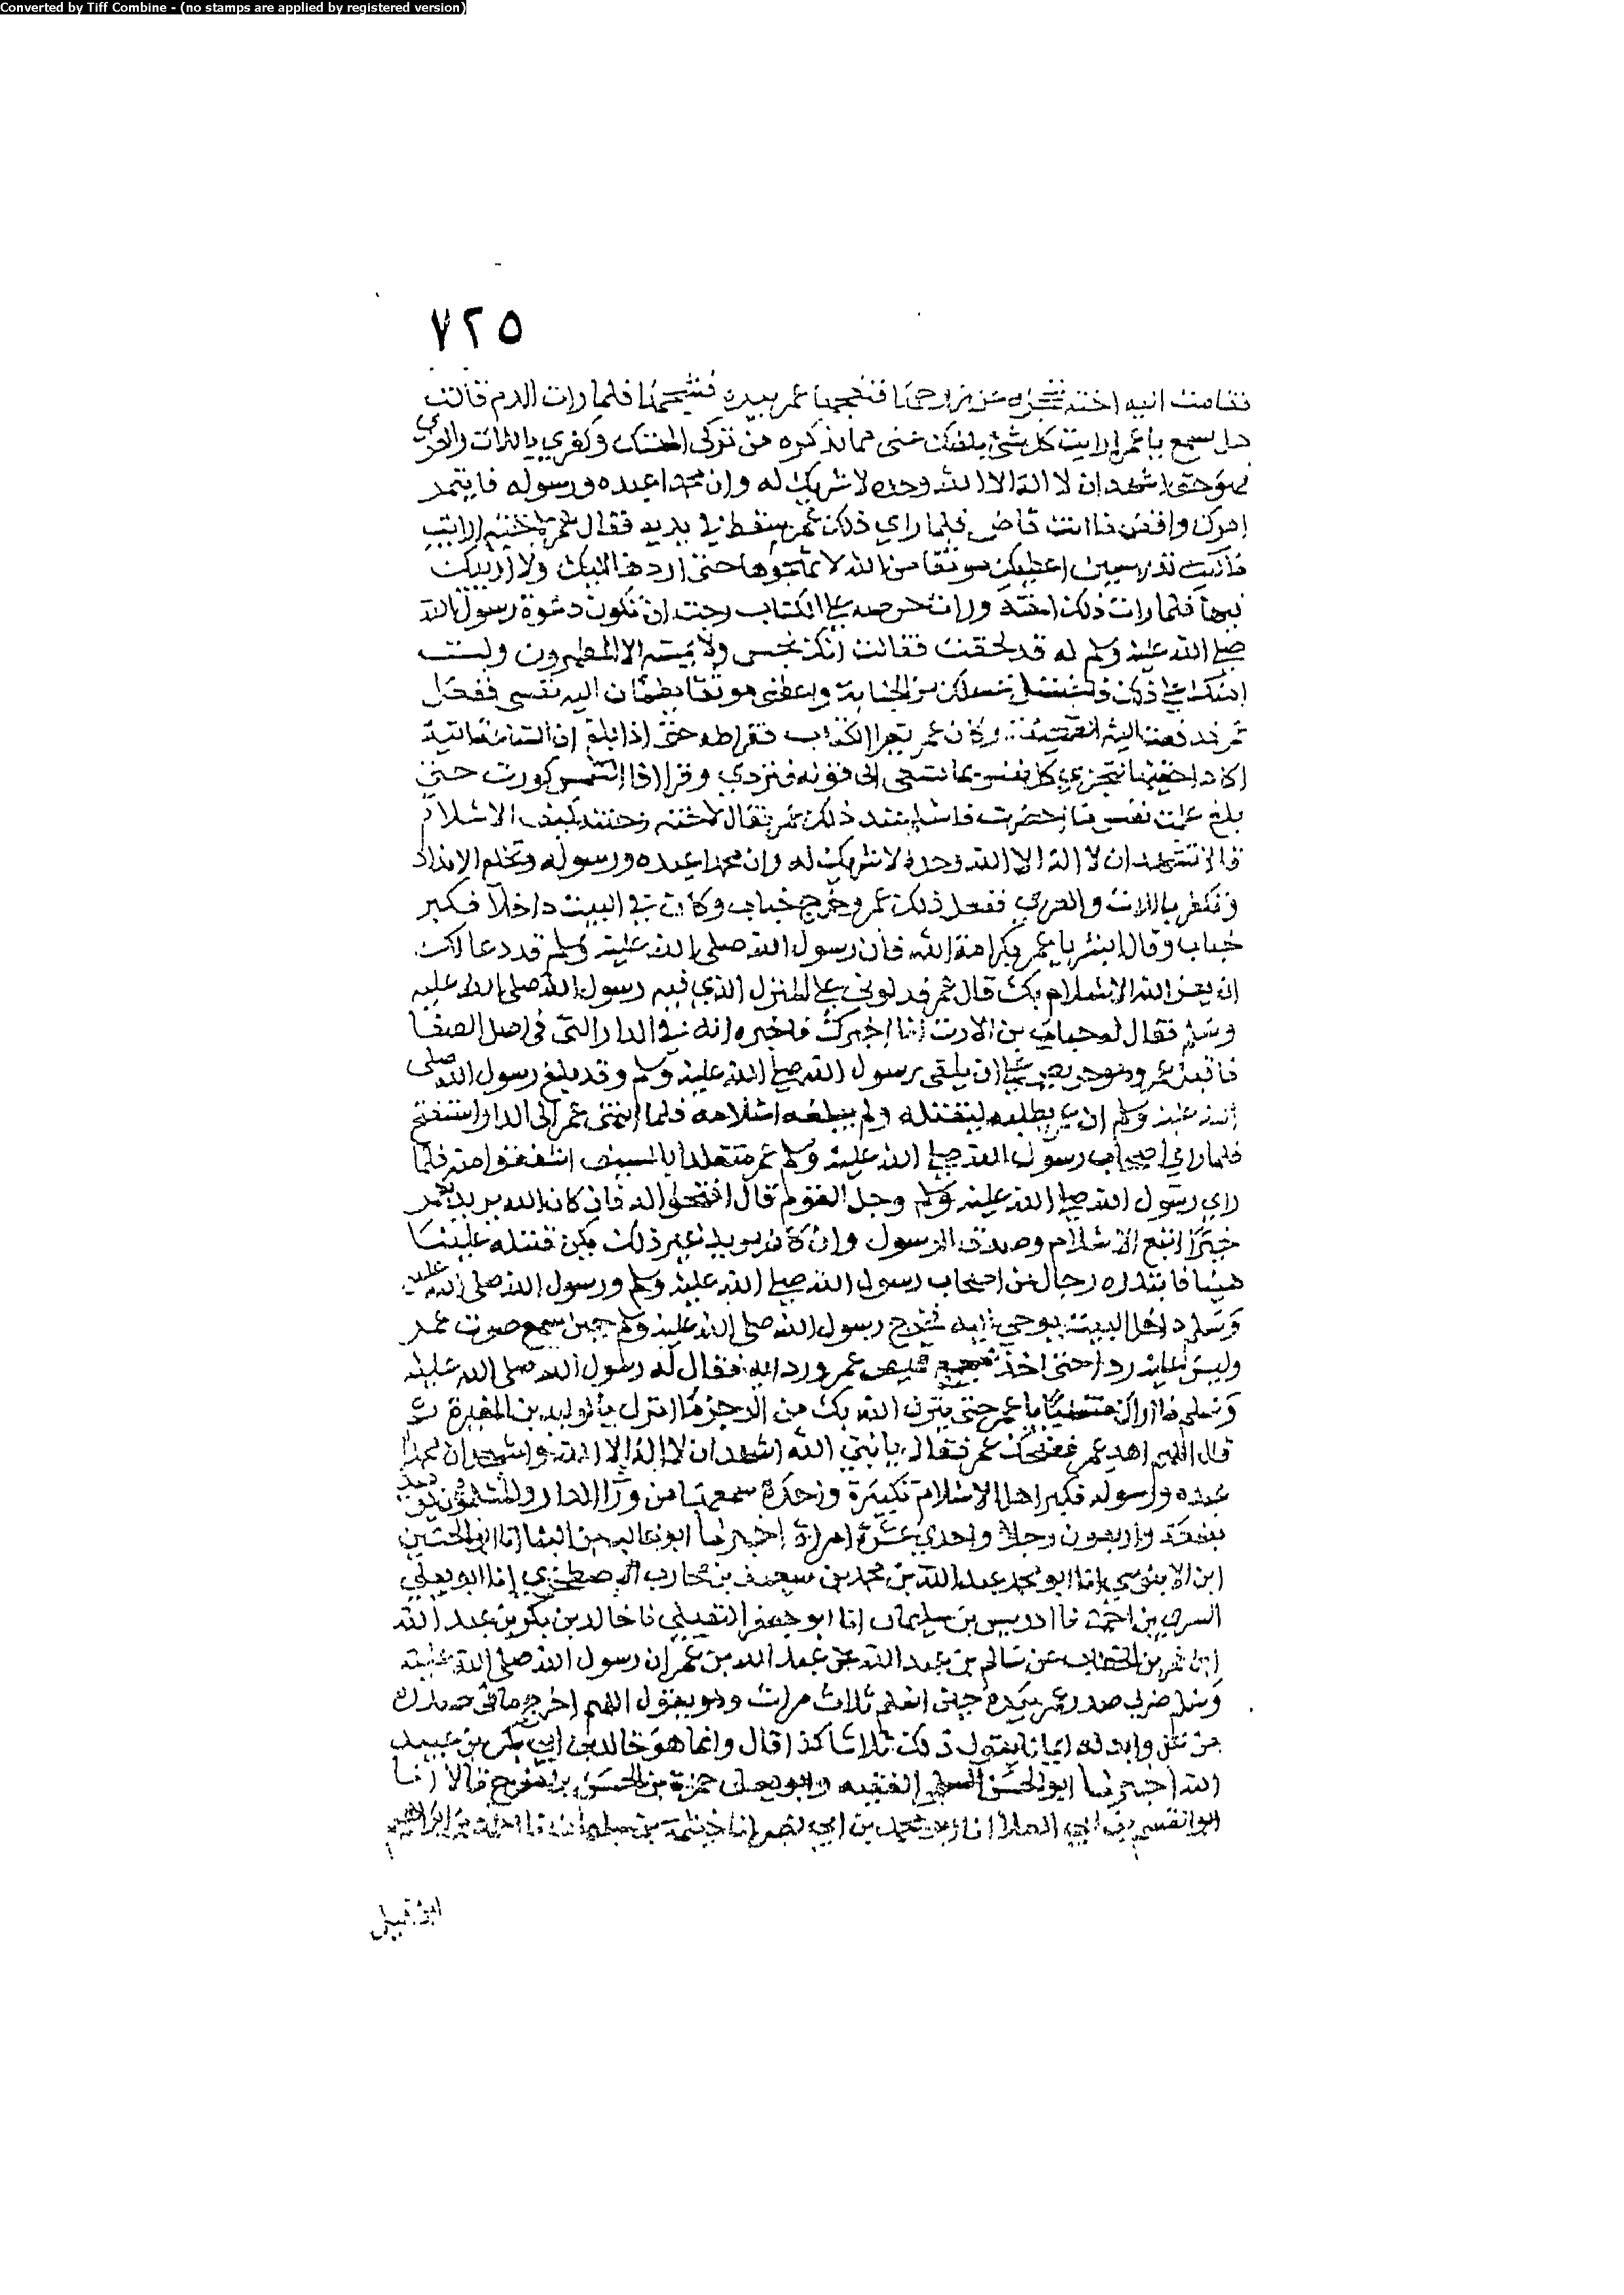 Converted by Tiff Combine - (no stamps are applied by registered version)
٧٢٥
فقامت اليه اخته تحجزه عن زوجها فنفحها عمر بيده فشجها فلما رات الدم قالت
هل تسمع يا عمر ارايت كل شئ بلغك عني مما تذكره من تركي الهتك وكفري باللات والعزى
فهو حق اشهد ان لا اله الا الله وحده لا شريك له وان محمدا عبده ورسوله فايتمر
امرك واقض ما انت قاض فلما راى ذلك عمر سقط في يديه فقال عمر لاخته ارايت
ما كنت تدرسين اعطيك موثقا من الله لا امحوها حتى اردها اليك ولا اريبك
فيها فلما رات ذلك اخته ورات حرصه على الكتاب رجت ان تكون دعوة رسول الله
صلى الله عليه وسلم له قد لحقت فقالت انك نجس ولا يمسه الا المطهرون ولست
امنك على ذلك فاغتسل غسلك من الجنابة واعطني موثقا يطمئن اليه نفسي ففعل
عمر فدفعت اليه الصحيفة وكان عمر يقرا الكتاب فقرا طه حتى اذا بلغ ان الساعة اتية
اكاد اخفيها لتجزى كل نفس بما تسعى الى قوله فتردى وقرا اذا الشمس كورت حتى
بلغ علمت نفس ما احضرت فاسلم عند ذلك عمر فقال لاخته وختنه كيف الاسلام
قالا تشهد ان لا اله الا الله وحده لا شريك له وان محمدا عبده ورسوله وتخلع الانداد
وتكفر باللات والعزى ففعل ذلك عمر وخرج خباب وكان في البيت داخلا فكبر
خباب وقال ابشر يا عمر بكرامة الله فان رسول الله صلى الله عليه وسلم قد دعا لك
ان يعز الله الاسلام بك قال عمر فدلوني على المنزل الذي فيه رسول الله صلى الله عليه
وسلم فقال له خباب بن الارت انا اخبرك فاخبره انه في الدار التي في اصل الصفا
فاقبل عمر وهو حريص على ان يلقى رسول الله صلى الله عليه وسلم وقد بلغ رسول الله صلى
الله عليه وسلم ان عمر يطلبه ليقتله ولم يبلغه اسلامه فلما انتهى عمر الى الدار استفتح
فلما راى اصحاب رسول الله صلى الله عليه وسلم عمر متقلدا بالسيف اشفقوا منه فلما
راى رسول الله صلى الله عليه وسلم وجل القوم قال افتحوا له فان كان الله يريد بعمر
خيرا اتبع الاسلام وصدق الرسول وان كان يريد غير ذلك يكن قتله علينا
هينا فابتدره رجال من اصحاب رسول الله صلى الله عليه وسلم ورسول الله صلى الله عليه
وسلم داخل البيت يوحى اليه فخرج رسول الله صلى الله عليه وسلم حين سمع صوت عمر
وليس عليه ردا حتى اخذ بمجمع قميص عمر وردايه فقال له رسول الله صلى الله عليه
وسلم ما اراك منتهيا يا عمر حتى ينزل الله بك من الرجز ما انزل بالوليد بن المغيرة ثم
قال اللهم اهد عمر فضحك عمر فقال يا نبي الله اشهد ان لا اله الا الله واشهد ان محمدا
عبده ورسوله فكبر اهل الاسلام تكبيرة واحدة سمعها من ورا الدار والمسلمون يومئذ
بضعة واربعون رجلا واحدى عشرة امراة اخبرنا ابو غالب بن البنا انا ابو الحسين
ابن الابنوسي انا ابو محمد عبد الله بن محمد بن سعيد بن محارب الاصطخري انا ابو يعلى
السري بن احمد نا ادريس بن سليمان انا ابو جعفر النفيلي نا خالد بن بكر بن عبد الله
ابن عمر بن الخطاب عن سالم بن عبد الله عن عبد الله بن عمر ان رسول الله صلى الله عليه
وسلم ضرب صدر عمر بيده حين اسلم ثلاث مرات وهو يقول اللهم اخرج ما في صدره
من غل وابدله ايمانا يقول ذلك ثلاثا كذا قال وانما هو خالد بن ابي بكر بن عبيد
الله اخبرنا ابو الحسن السلمي الفقيه وابو يعلى حمزة بن الحسن بن المفرج قالا انا
ابو القسم بن ابي العلا انا ابو محمد بن ابي نصر انا خيثمة بن سليمان نا احمد بن ابراهيم
ابن فيل